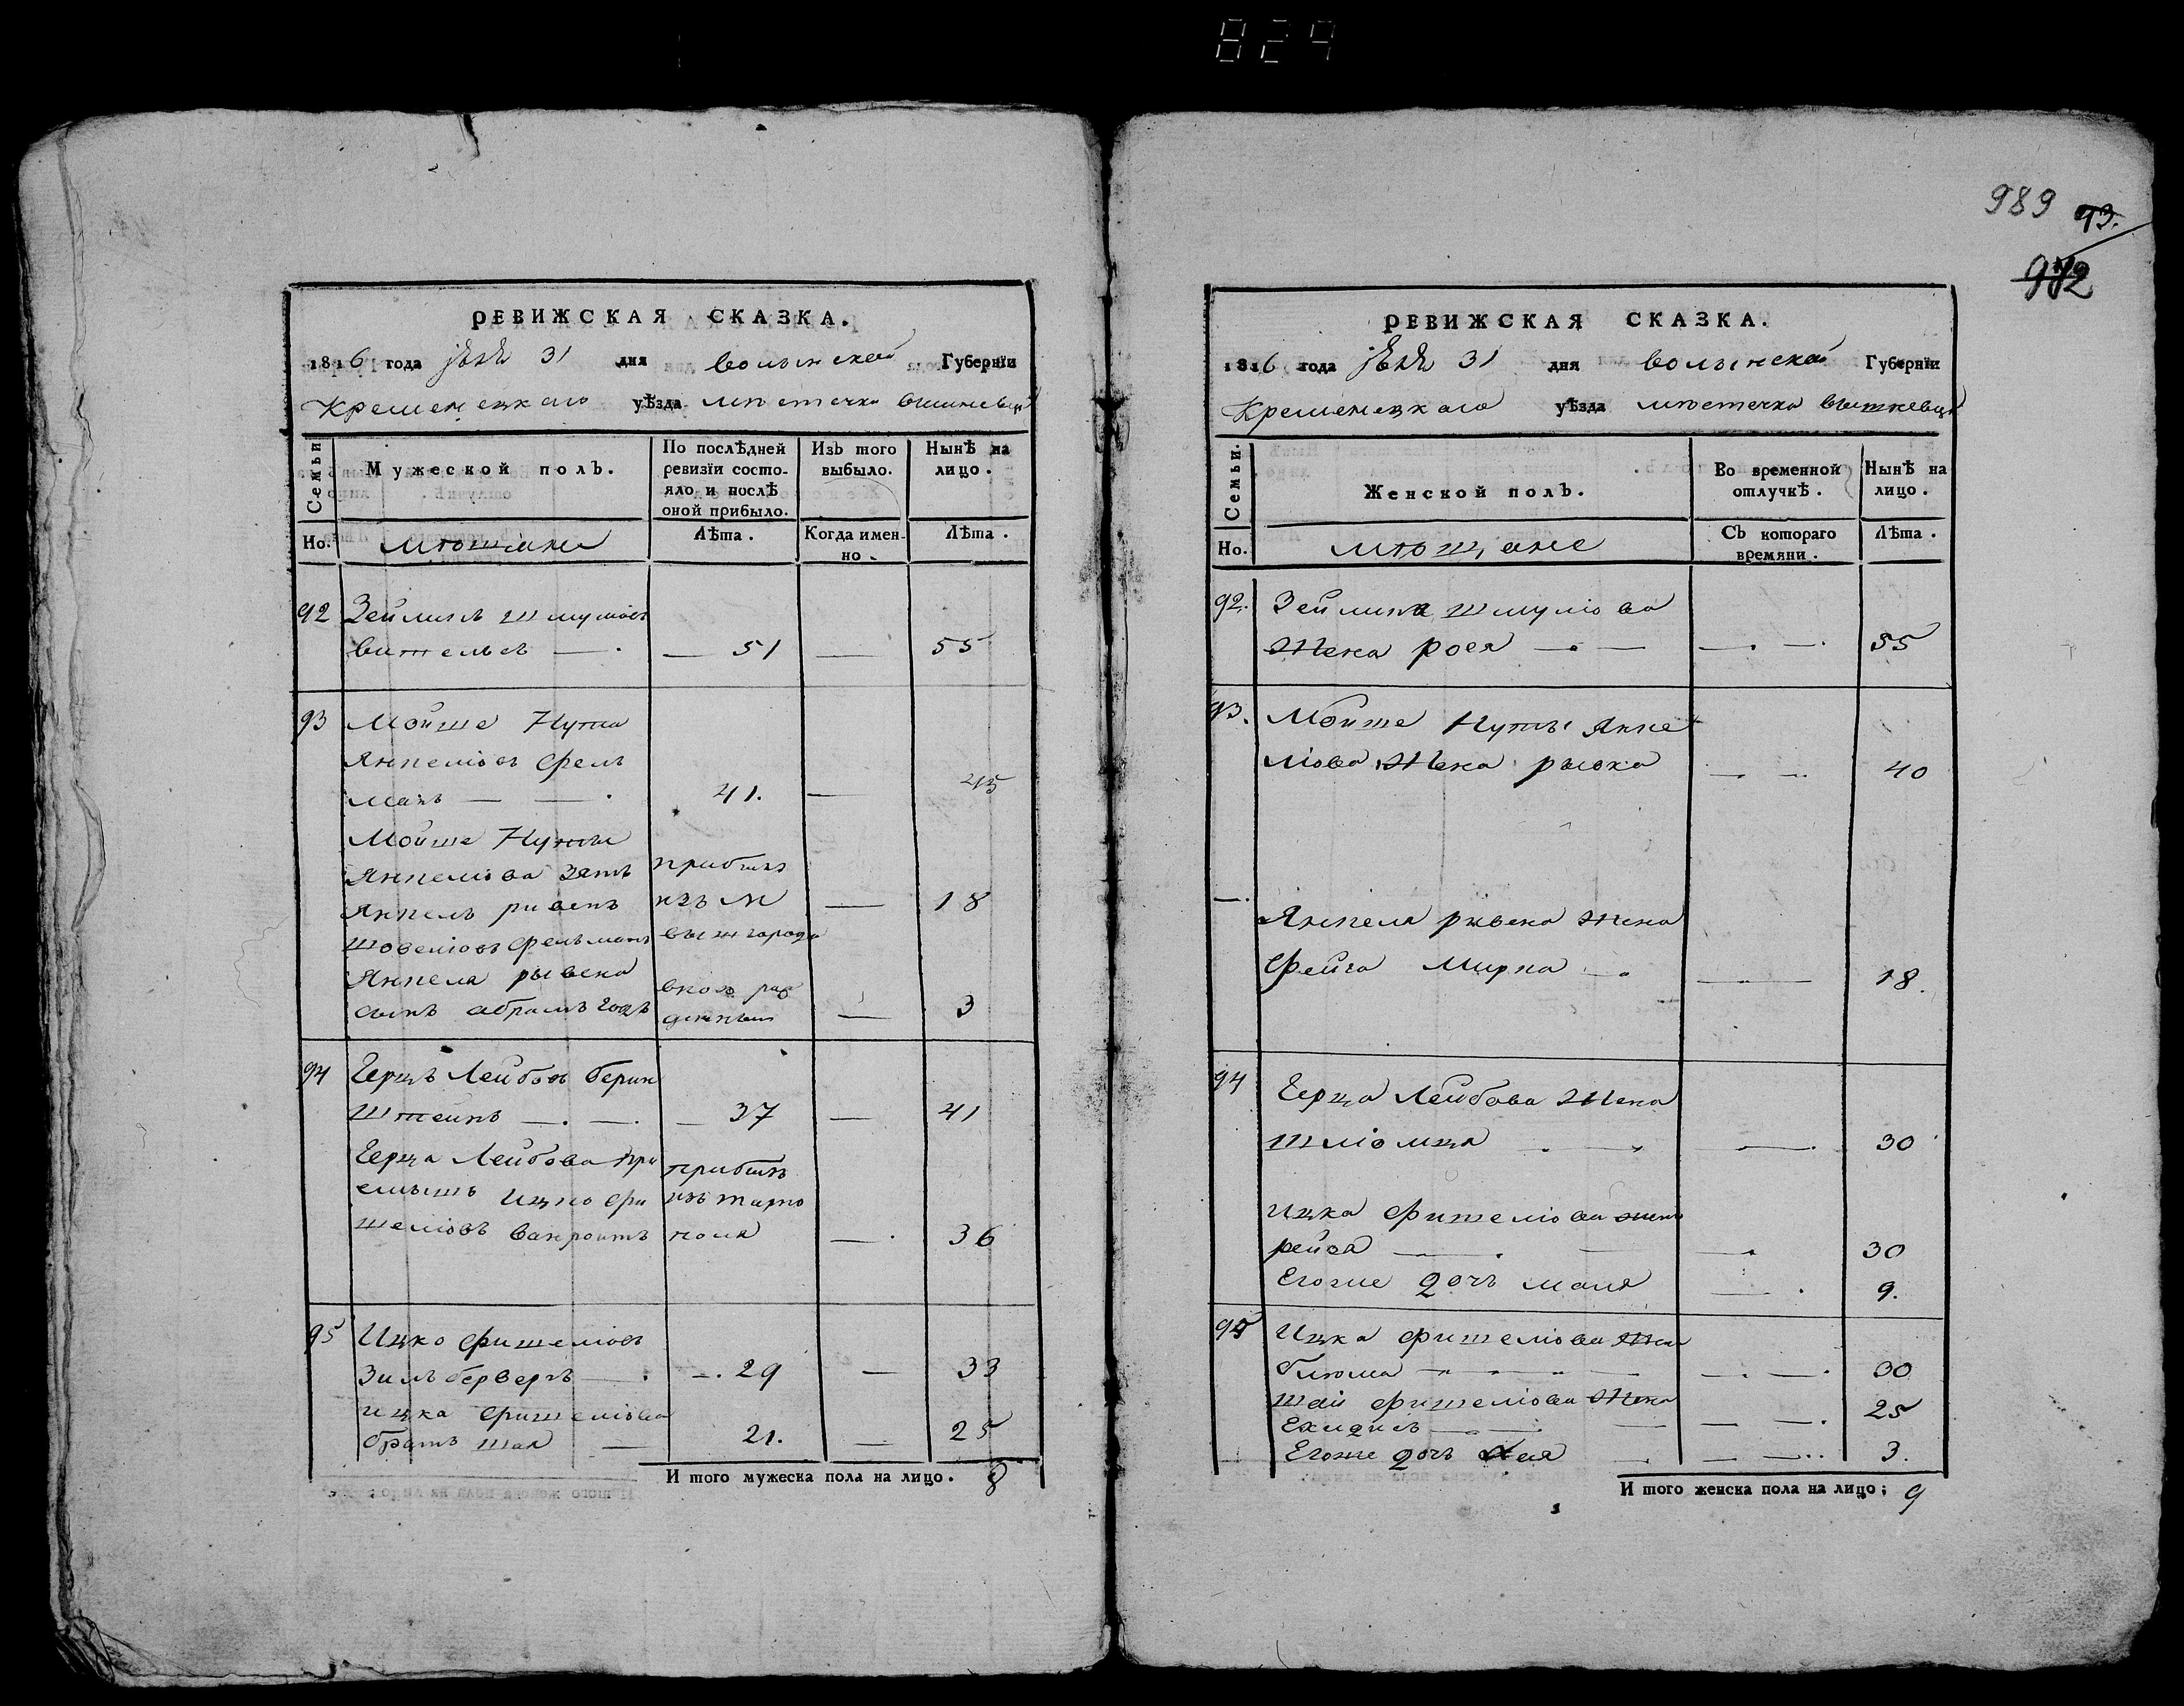 829
РЕВИЖСКАЯ СКАЗКА.
1816 года 31 дня волынской Губернїи
Кременецкаго уѣзда мѣстечка вишневца
Семьи
Мужеской полъ.
По послѣдней ревизїи состояло и послѣ оной прибыло.
Изъ того выбыло.
Нынѣ на лицо.
Но.
мѣщане
Лѣта.
Когда именно.
Лѣта.
92 Зейликъ шмулiовъ
вительсъ — 51 — 55
93 Мойше Нута
Янкелiовъ фель
манъ — 41. — 45
Мойше Нуты
Янкелiова зять прибылъ
Янкель рувенъ изъ м — 18
шовелiовъ фельманъ вышгородка
Янкеля рывена вновь рож
сынъ абрамъ денный — 3
94 Герцъ Лейбовъ берин
штейнъ — 37 — 41
Герца Лейбова при прибылъ
емышъ ицко фи изъ тарно
шелiовъ ванроитъ поля — 36
95 Ицко фишелiовъ
Зильберберъ — 29 — 33
ицка фишелiова
братъ шая — 21. — 25
И того мужеска пола на лицо. 8
989 93.
972
РЕВИЖСКАЯ СКАЗКА.
1816 года 31 дня волынской Губернїи
Кременецкаго уѣзда мѣстечка вишневца
Семьи.
Женской полъ.
Во временной отлучкѣ.
Нынѣ на лицо.
Но.
мѣщане
Съ котораго времяни.
Лѣта.
92. Зейлика шмулiова
жена рося — 55
93. Мойше Нуты Янке
лiова жена рывка — 40
Янкеля рывена жена
фейга Мирка — 18.
94 Герца Лейбова жена
шлiомца — 30
ицка фишелiова жена
рейзя — 30
Егоже дочь маля — 9.
95 Ицка фишелiова жена
блюма — 30
шаи фишелiова жена 25
Ехидись —
Егоже дочь хая — 3.
И того женска пола на лицо; 9